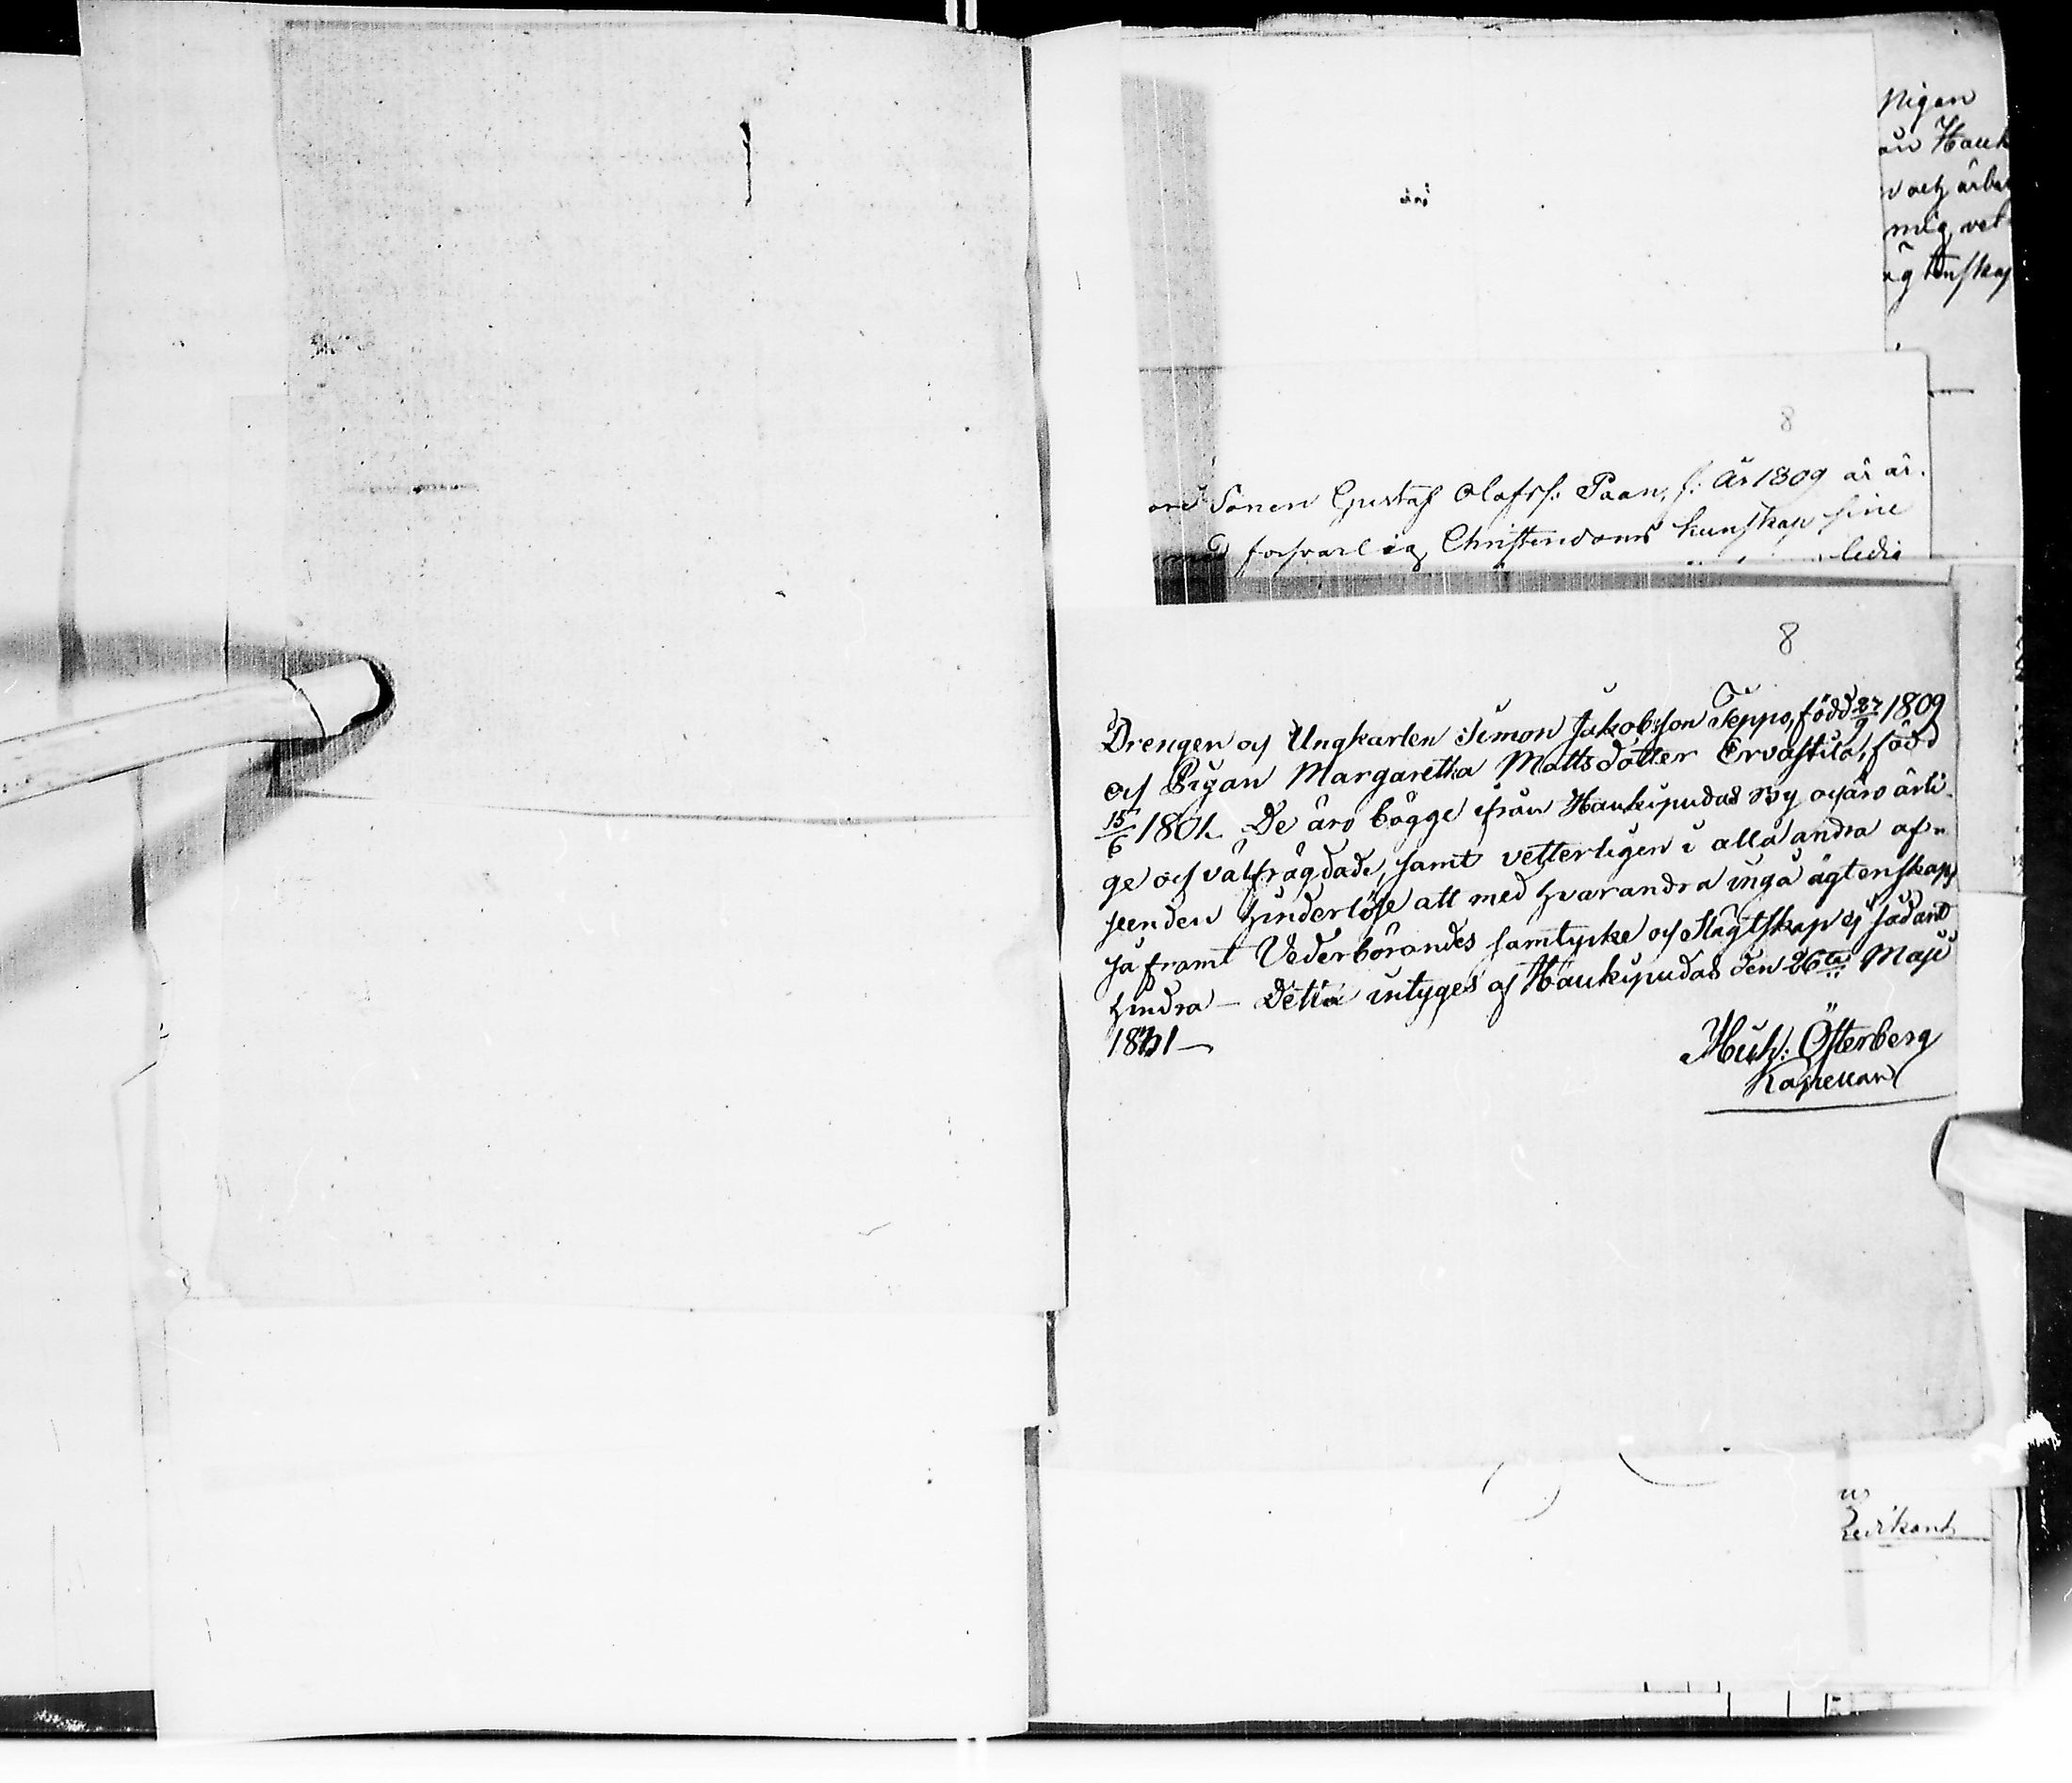 Pigan
ån Hauk
mig vet
ägtenskap
8
Sonen Gustaf Olofss: Paan, f: År 1809 är är.
försvarlig Christendoms kunskap sine
ledig
8
Drengen och Ungkarlen Simon Jakobsson Teppo, född 27/9 1809
och Pigan Margaretha Mattsdotter Ervastila, född
15/6 1801. De äro bägge ifrån Haukipudas By och äro ärli-
ge och välfrägdade, samt vetterligen i alla andra af-
seenden hinderlöse att med hvarandra ingå ägtenskap
så framt Vederbörandes samtycke och Slägtskap ej sådant
hindra – Detta intyges af Haukipudas den 26te Maji
1831 –
Mich: Österberg
Kapellan